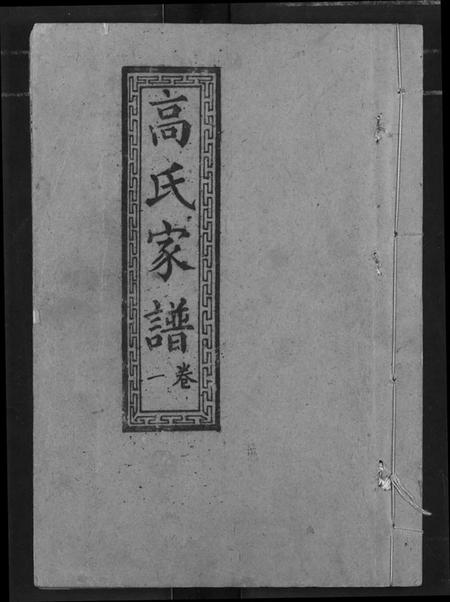 高氏家譜
卷一